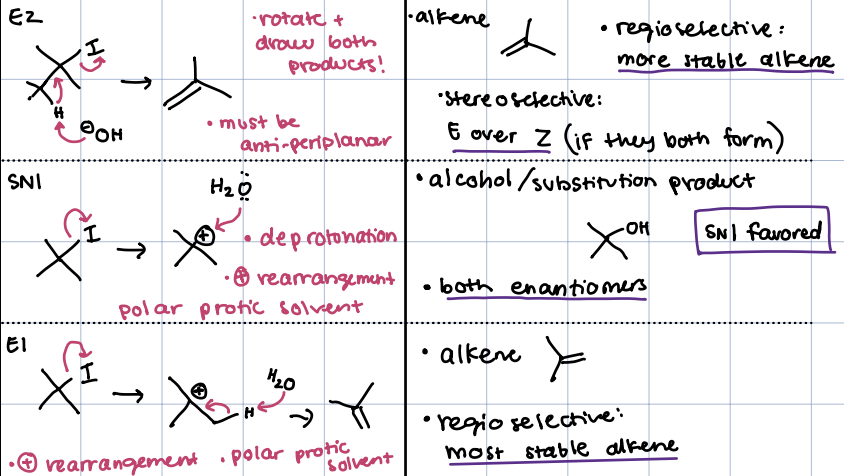 E2
• rotate +
draw both
products!
I
H
⊖OH
• must be
anti-periplanar
• alkene
• regioselective:
more stable alkene
• stereoselective:
E over Z (if they both form)
SN1
H₂O
I
⊕
• deprotonation
• ⊕ rearrangement
polar protic solvent
• alcohol/substitution product
OH
SN1 favored
• both enantiomers
E1
I
⊕
H
H₂O
• ⊕ rearrangement
• polar protic
solvent
• alkene
• regioselective:
most stable alkene